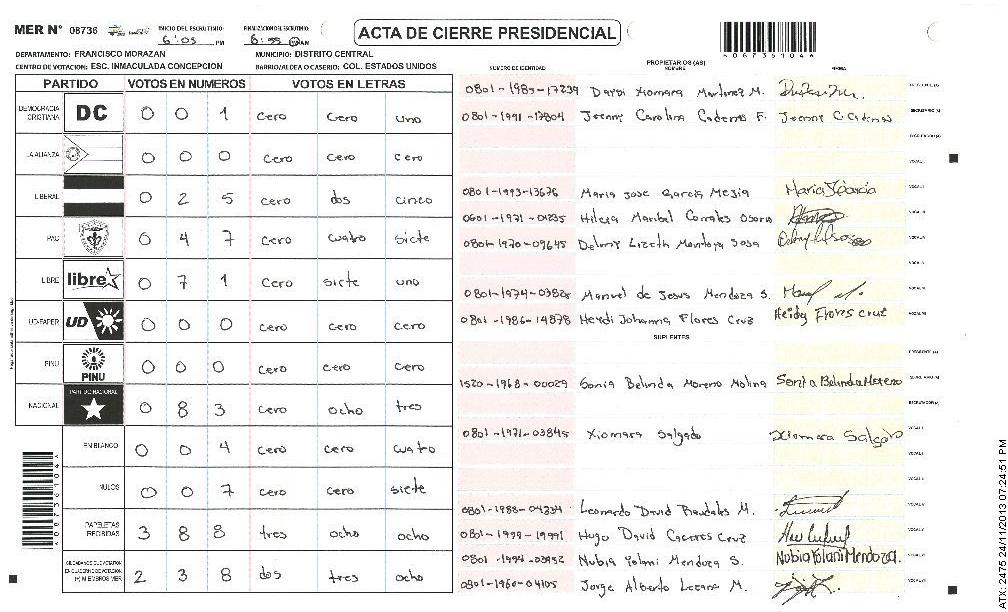 MER Nº 08736
INICIO DEL ESCRUTINIO:
6:05 PM
FINALIZACION DEL ESCRUTINIO:
6:55
ACTA DE CIERRE PRESIDENCIAL
DEPARTAMENTO: FRANCISCO MORAZAN
MUNICIPIO: DISTRITO CENTRAL
CENTRO DE VOTACION: ESC. INMACULADA CONCEPCION
BARRIO/ALDEA O CASERIO: COL. ESTADOS UNIDOS
PARTIDO VOTOS EN NUMEROS VOTOS EN LETRAS
DEMOCRACIA CRISTIANA DC 0 0 1 cero cero uno
LA ALIANZA 0 0 0 cero cero cero
LIBERAL 0 2 5 cero dos cinco
PAC 0 4 7 cero cuatro siete
LIBRE libre 0 7 1 cero siete uno
UD-FAPER UD 0 0 0 cero cero cero
PINU PINU 0 0 0 cero cero cero
NACIONAL PARTIDO NACIONAL 0 8 3 cero ocho tres
EN BLANCO 0 0 4 cero cero cuatro
NULOS 0 0 7 cero cero siete
PAPELETAS RECIBIDAS 3 8 8 tres ocho ocho
2 3 8 dos tres ocho
NUMERO DE IDENTIDAD PROPIETARIOS (AS) NOMBRE FIRMA
0801-1985-17239 Xiomara Martinez M.
0801-1991-17804 Jenny Carolina F. Jenny C
0801-1993-13676 Maria Jose Garcia Mejia Maria J Garcia
0601-1971-01235 Maribel Corrales Osorio
0801-1970-09645 Lizeth Mendoza Sosa
0801-1974-03825 Manuel de Jesus Mendoza S.
0801-1986-14878 Heydi Johanna Flores Cruz Heidy Flores Cruz
SUPLENTES
1520-1968-00029 Sonia Belinda Moreno Molina Sonia Belinda Moreno
0801-1971-03845 Xiomara Salgado Xiomara Salgado
0801-1988-04234 Leonardo David M.
0801-1979-19991 Hugo David Caceres Cruz
0801-1994-03952 Nubia Yolani Mendoza S. Nubia Yolani Mendoza.
0801-1960-04105 Jorge Alberto M.
ATX: 2475 24/11/2013 07:24:51 PM